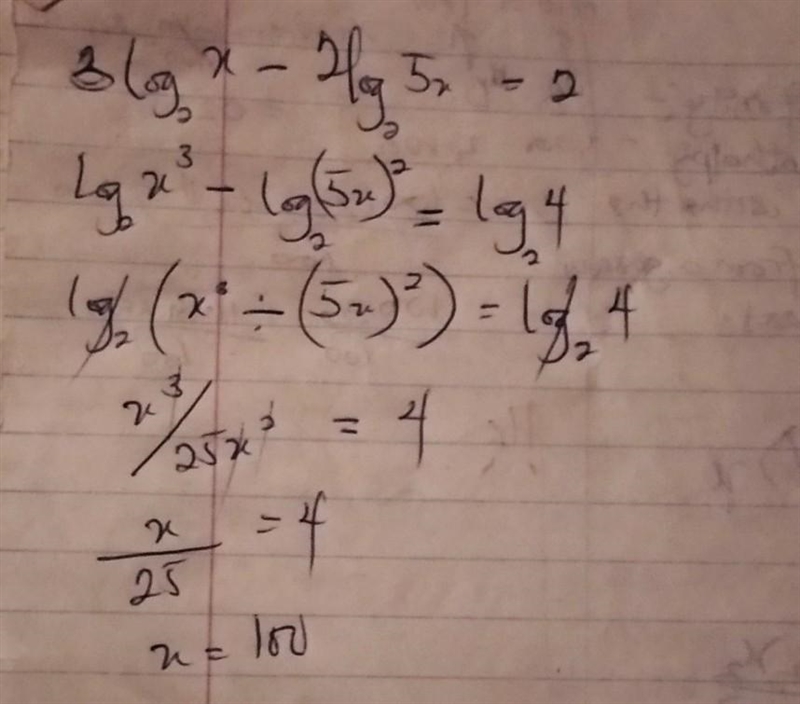 3 log₂ x − 2log₂ 5x = 2
log₂ x³ − log₂(5x)² = log₂ 4
log₂ (x³ ÷ (5x)²) = log₂ 4
x³/25x² = 4
x/25 = 4
x = 100